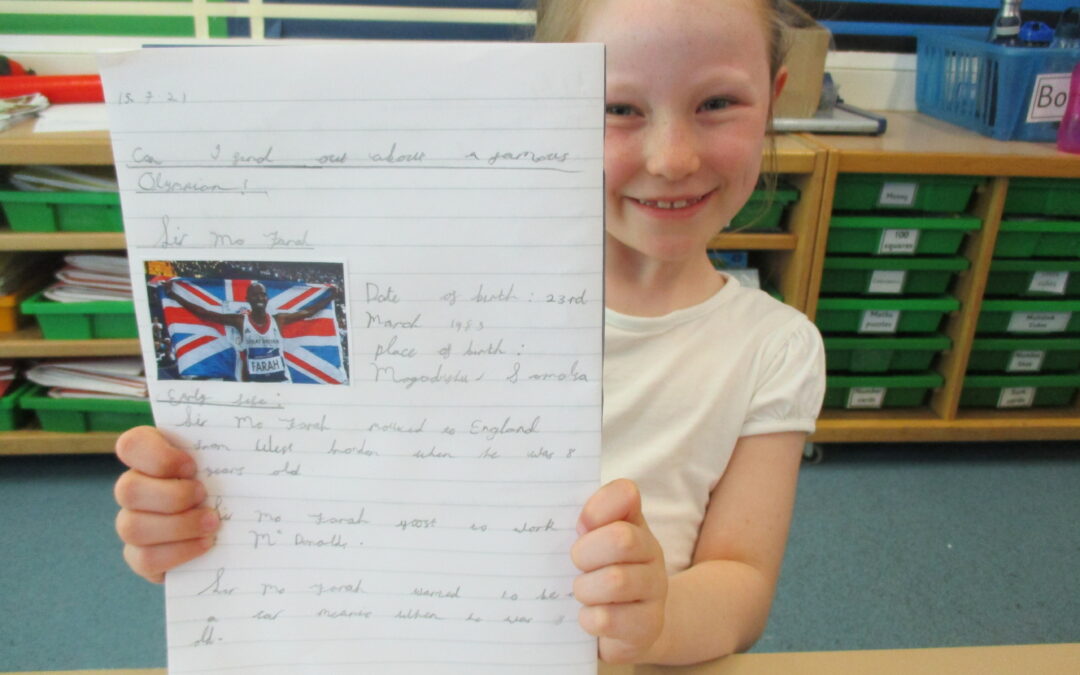 15.7.21
Can I find out about a famous
Olympian!
Sir Mo Farah
GREAT BRITAIN
FARAH
Date of birth: 23rd
March 1983
place of birth:
Mogadishu, Somalia
Early life:
Sir Mo Farah moved to England
from West London when he was 8
years old
Sir Mo Farah yoost to work
Mc Donalds.
Sir Mo Farah wanted to be
a car mecanic when he was 8
old.
Bo
Money
100 squares
Maths puzzles
Number cards